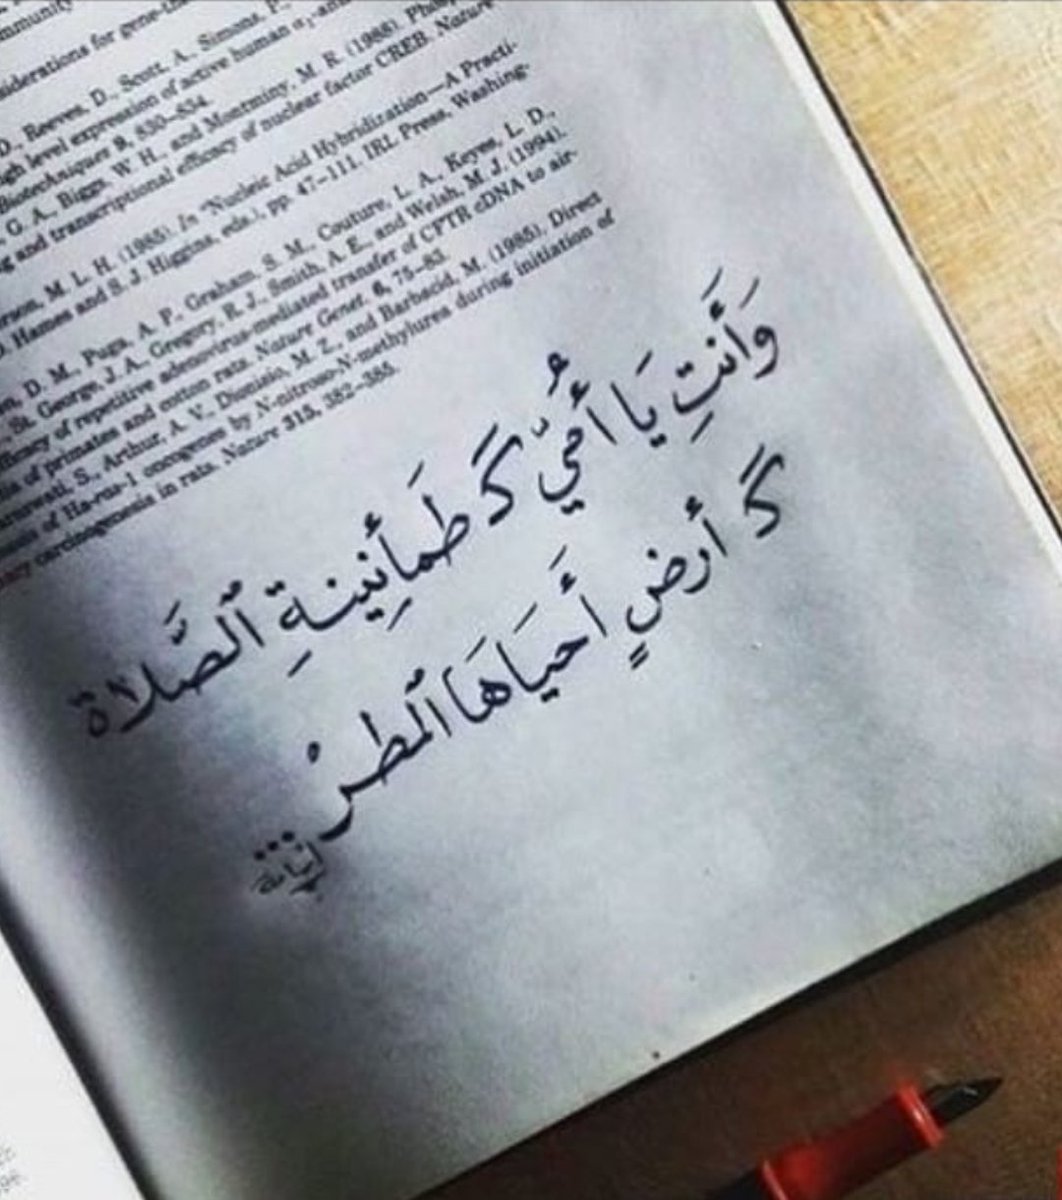 mmunity
siderations for gene-the
D., Reeves, D., Scott, A., Simons, P.,
gh level expression of active human α₁-an
Biotechniques 9, 630–634.
, G. A., Biggs, W. H., and Montminy, M. R. (1988). Phosp
g and transcriptional efficacy of nuclear factor CREB. Nature
erson, M. L. H. (1985). In "Nucleic Acid Hybridization—A Practi-
D. Hames and S. J. Higgins, eds.), pp. 47–111. IRL Press, Washing-
en, D. M., Puga, A. P., Graham, S. M., Couture, L. A., Keyes, L. D.,
, St. George, J. A., Gregory, R. J., Smith, A. E., and Welsh, M. J. (1994).
fficacy of repetitive adenovirus-mediated transfer of CFTR cDNA to air-
lia of primates and cotton rats. Nature Genet. 6, 75–83.
S., Arthur, A. V., Dionisio, M. Z., and Barbacid, M. (1985). Direct
enesis of Ha-ras-1 oncogenes by N-nitroso-N-methylurea during initiation of
ary carcinogenesis in rats. Nature 315, 382–385.
وَأَنتِ يَا أُمِّي كَ طَمأنِينةِ ٱلصَّلاة
كَ أرضٍ أَحيَاهَا ٱلمطرُ...